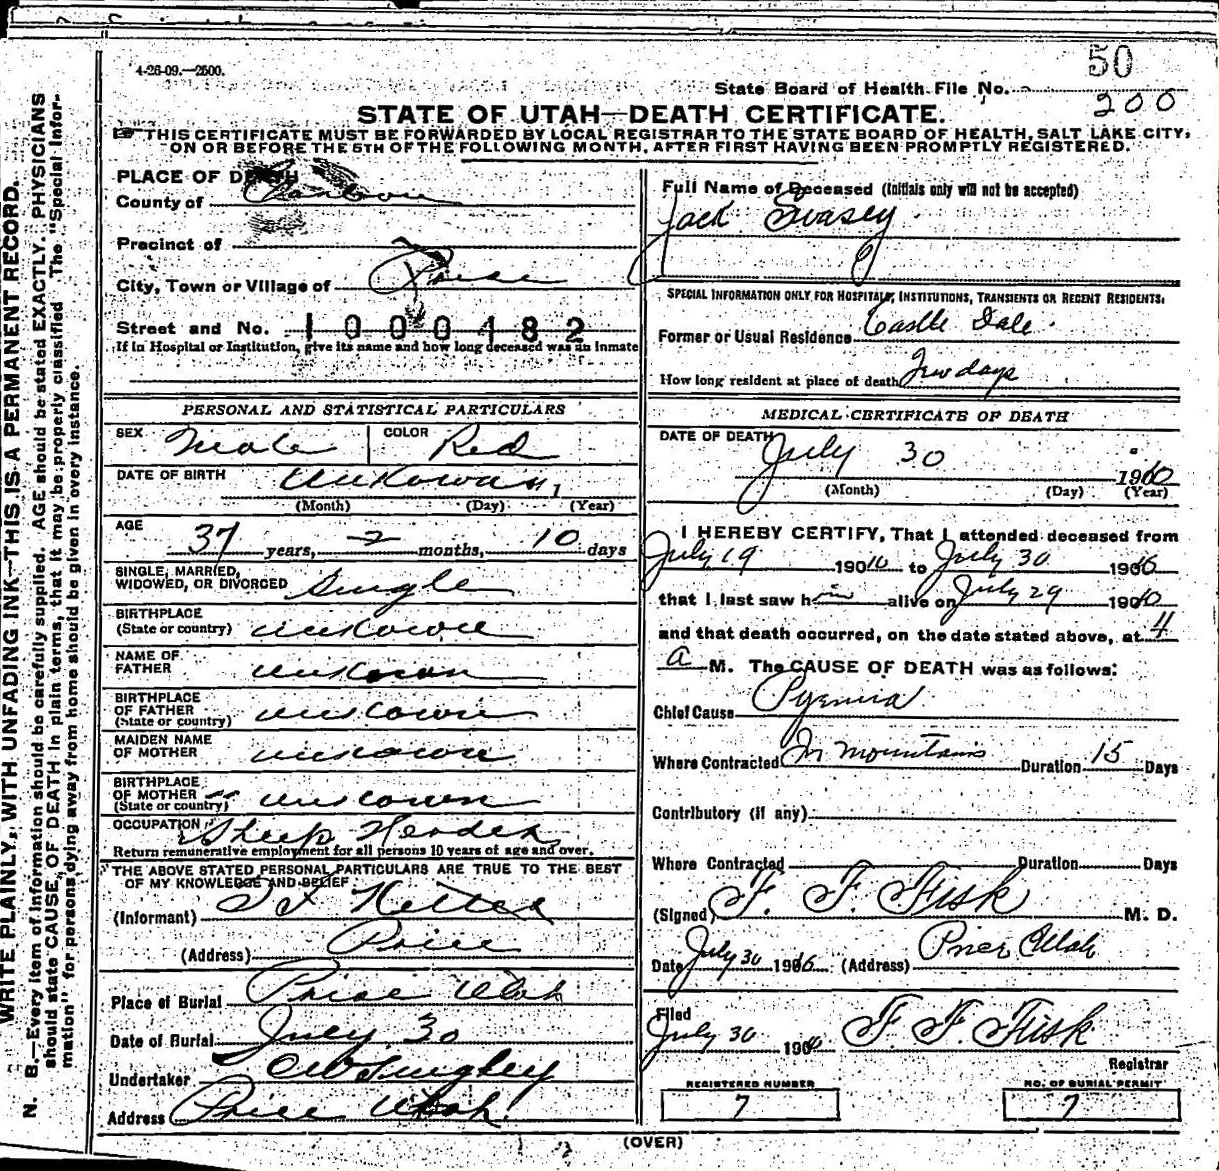 4-26-09.—2500.
50
State Board of Health File No.
200
STATE OF UTAH—DEATH CERTIFICATE.
☞ THIS CERTIFICATE MUST BE FORWARDED BY LOCAL REGISTRAR TO THE STATE BOARD OF HEALTH, SALT LAKE CITY,
ON OR BEFORE THE 5TH OF THE FOLLOWING MONTH, AFTER FIRST HAVING BEEN PROMPTLY REGISTERED.
WRITE PLAINLY, WITH UNFADING INK—THIS IS A PERMANENT RECORD.
N. B.—Every item of information should be carefully supplied. AGE should be stated EXACTLY. PHYSICIANS
should state CAUSE OF DEATH in plain terms, that it may be properly classified. The "Special Infor-
mation" for persons dying away from home should be given in every instance.
PLACE OF DEATH
County of Carbon
Precinct of
City, Town or Village of Price
Street and No. 1000482
If in Hospital or Institution, give its name and how long deceased was an inmate
PERSONAL AND STATISTICAL PARTICULARS
SEX Male COLOR Red
DATE OF BIRTH Unkowan
(Month) (Day) (Year)
AGE
37 years, 2 months, 10 days
SINGLE, MARRIED,
WIDOWED, OR DIVORCED Single
BIRTHPLACE
(State or country) unkown
NAME OF
FATHER unkown
BIRTHPLACE
OF FATHER
(State or country) unkown
MAIDEN NAME
OF MOTHER unkown
BIRTHPLACE
OF MOTHER
(State or country) unkown
OCCUPATION Sheep Herder
Return remunerative employment for all persons 10 years of age and over.
THE ABOVE STATED PERSONAL PARTICULARS ARE TRUE TO THE BEST
OF MY KNOWLEDGE AND BELIEF
(Informant)
(Address) Price
Place of Burial Price Utah
Date of Burial July 30
Undertaker
Address Price Utah
Full Name of Deceased (Initials only will not be accepted)
Jack Swasey
SPECIAL INFORMATION ONLY FOR HOSPITALS, INSTITUTIONS, TRANSIENTS OR RECENT RESIDENTS.
Former or Usual Residence Castle Dale
How long resident at place of death Few days
MEDICAL CERTIFICATE OF DEATH
DATE OF DEATH
July 30 1910
(Month) (Day) (Year)
I HEREBY CERTIFY, That I attended deceased from
July 19 1910 to July 30 1910
that I last saw him alive on July 29 1910
and that death occurred, on the date stated above, at 4
a M. The CAUSE OF DEATH was as follows:
Chief Cause Pyemia
Where Contracted In mountains Duration 15 Days
Contributory (if any)
Where Contracted Duration Days
(Signed) F. F. Fisk M. D.
Date July 30 1910 (Address) Price Utah
Filed
July 30 1910 F. F. Fisk
Registrar
REGISTERED NUMBER
7
NO. OF BURIAL PERMIT
7
(OVER)